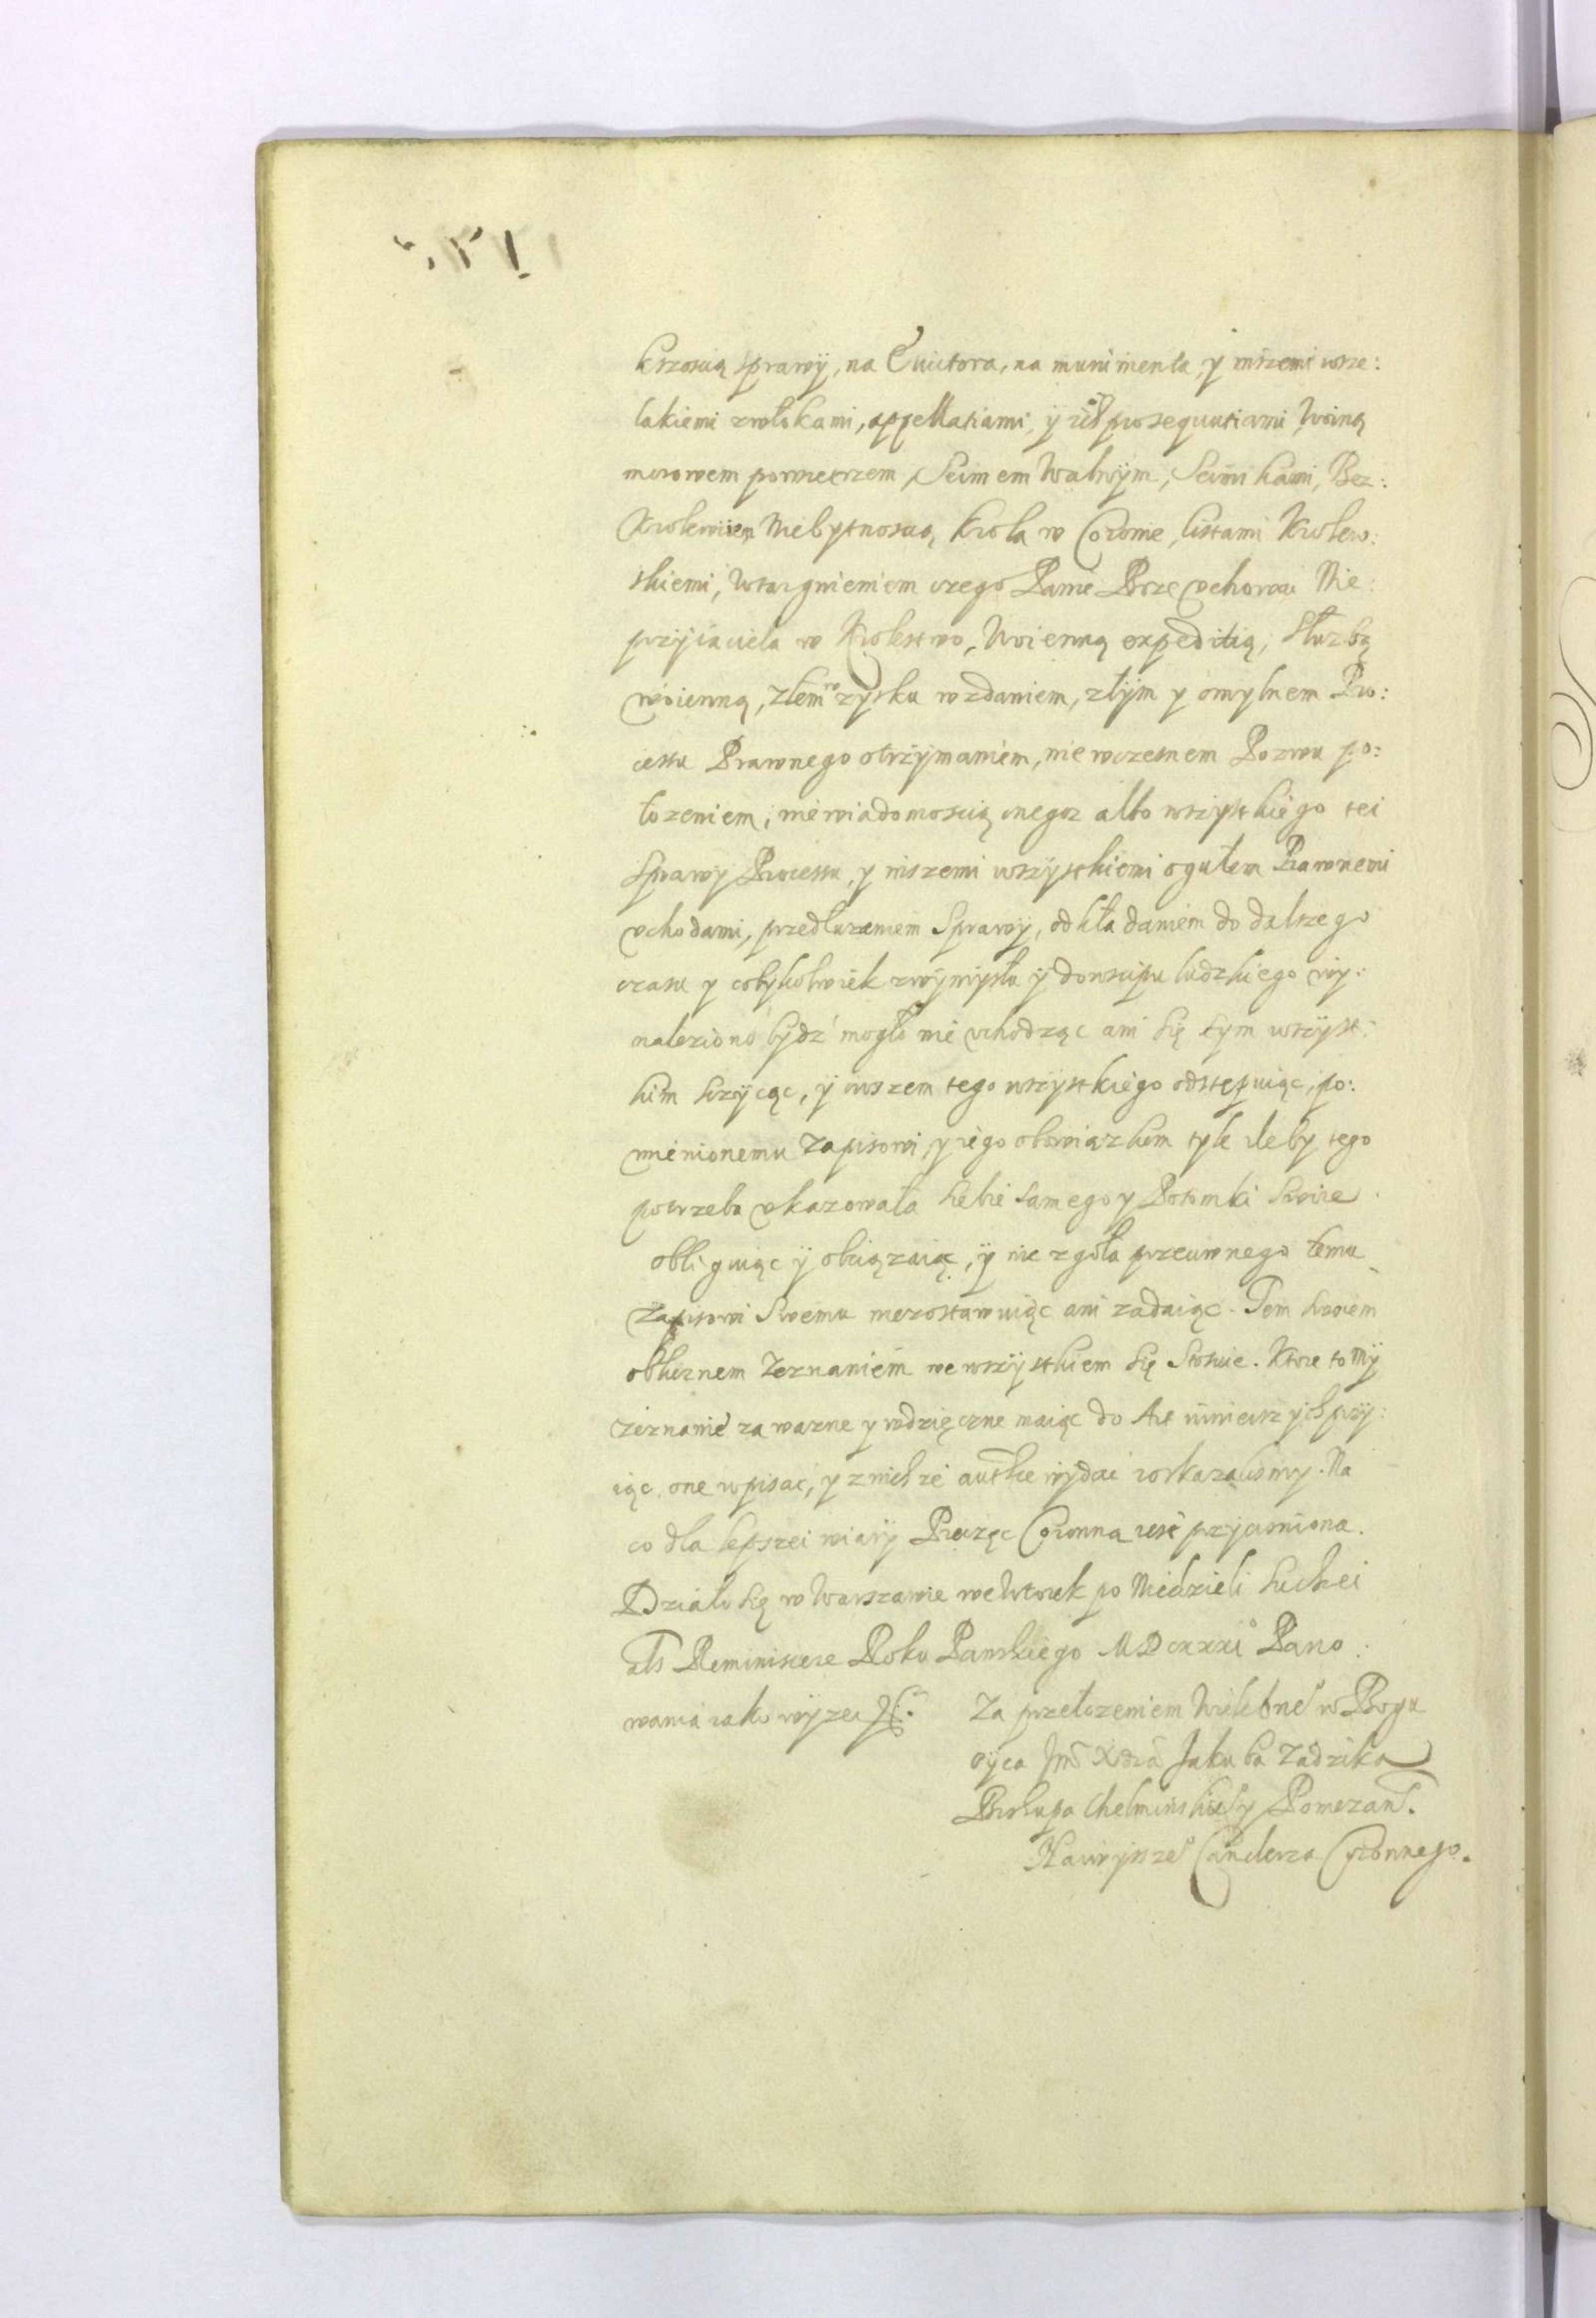 kszoscią sprawÿ, na Evictora, na munimenta, y inszemi wsze:
lakiemi zwłokami, appellatiami, ÿ ich prosequutiami, Woiną
morowem powietrzem, Seimem Walnÿm, Seimikami, Bez:
Krolewiem, Niebytnoscią Krola w Coronie, listami Krolew:
skiemi, Wtargnieniem czego Panie Boze vchowai Nie:
przÿiaciela w Krolestwo, Woienną expeditią, Służbą
woienną, złem w zysku wzdaniem, złÿm y omylnem Pro:
cessu Prawnego otrzÿmaniem, niewczesnem Pozwu po:
łozeniem, niewiadomoscią onegoz albo wszÿstkiego tei
Sprawy Processu, y inszemi wszÿstkiemi ogułem Prawnemi
vchodami, przedłuzeniem Sprawÿ, odkładaniem do dalszego
czasu y cobÿkolwiek z wÿmysłu ÿ dowscipu ludzkiego wÿ:
naleziono bÿdź mogło nie vchodząc ani się tym wszÿst:
kim szczÿcąc, ÿ owszem tego wszÿstkiego odstępuiąc, po:
mienionemu Zapisowi, y iego obowiązkom tyle ileby tego
potrzeba vkazowała siebie samego y Potomki swoie
obliguiąc ÿ obciązaiąc, ÿ nic zgoła przeciwnego temu
Zapisowi Swemu niezostawuiąc ani zadaiąc. Tem swoiem
oblicznem Zeznaniem we wszÿstkiem się Stosuie. Ktore to Mÿ
zeznanie za wazne y wdzięczne maiąc do Act ninieiszÿch przÿ:
iąc, one wpisac, y z nichze autthce wÿdać roskazalismy. Na
co dla lepszei wiarÿ Pieczęc Coronna iest przÿcisniona.
Działo się w Warszawie we Wtorek po Niedzieli Suchei
als Reminiscere Roku Panskiego MDCXXXI Pano:
wania iako wÿzei
Za przełozeniem Wielebneº w Bogu
oÿca Jmci Xdza Jakuba Zadzika
Biskupa Chelminskieº y Pomezans.
Nawÿszeº Canclerza Coronnego.